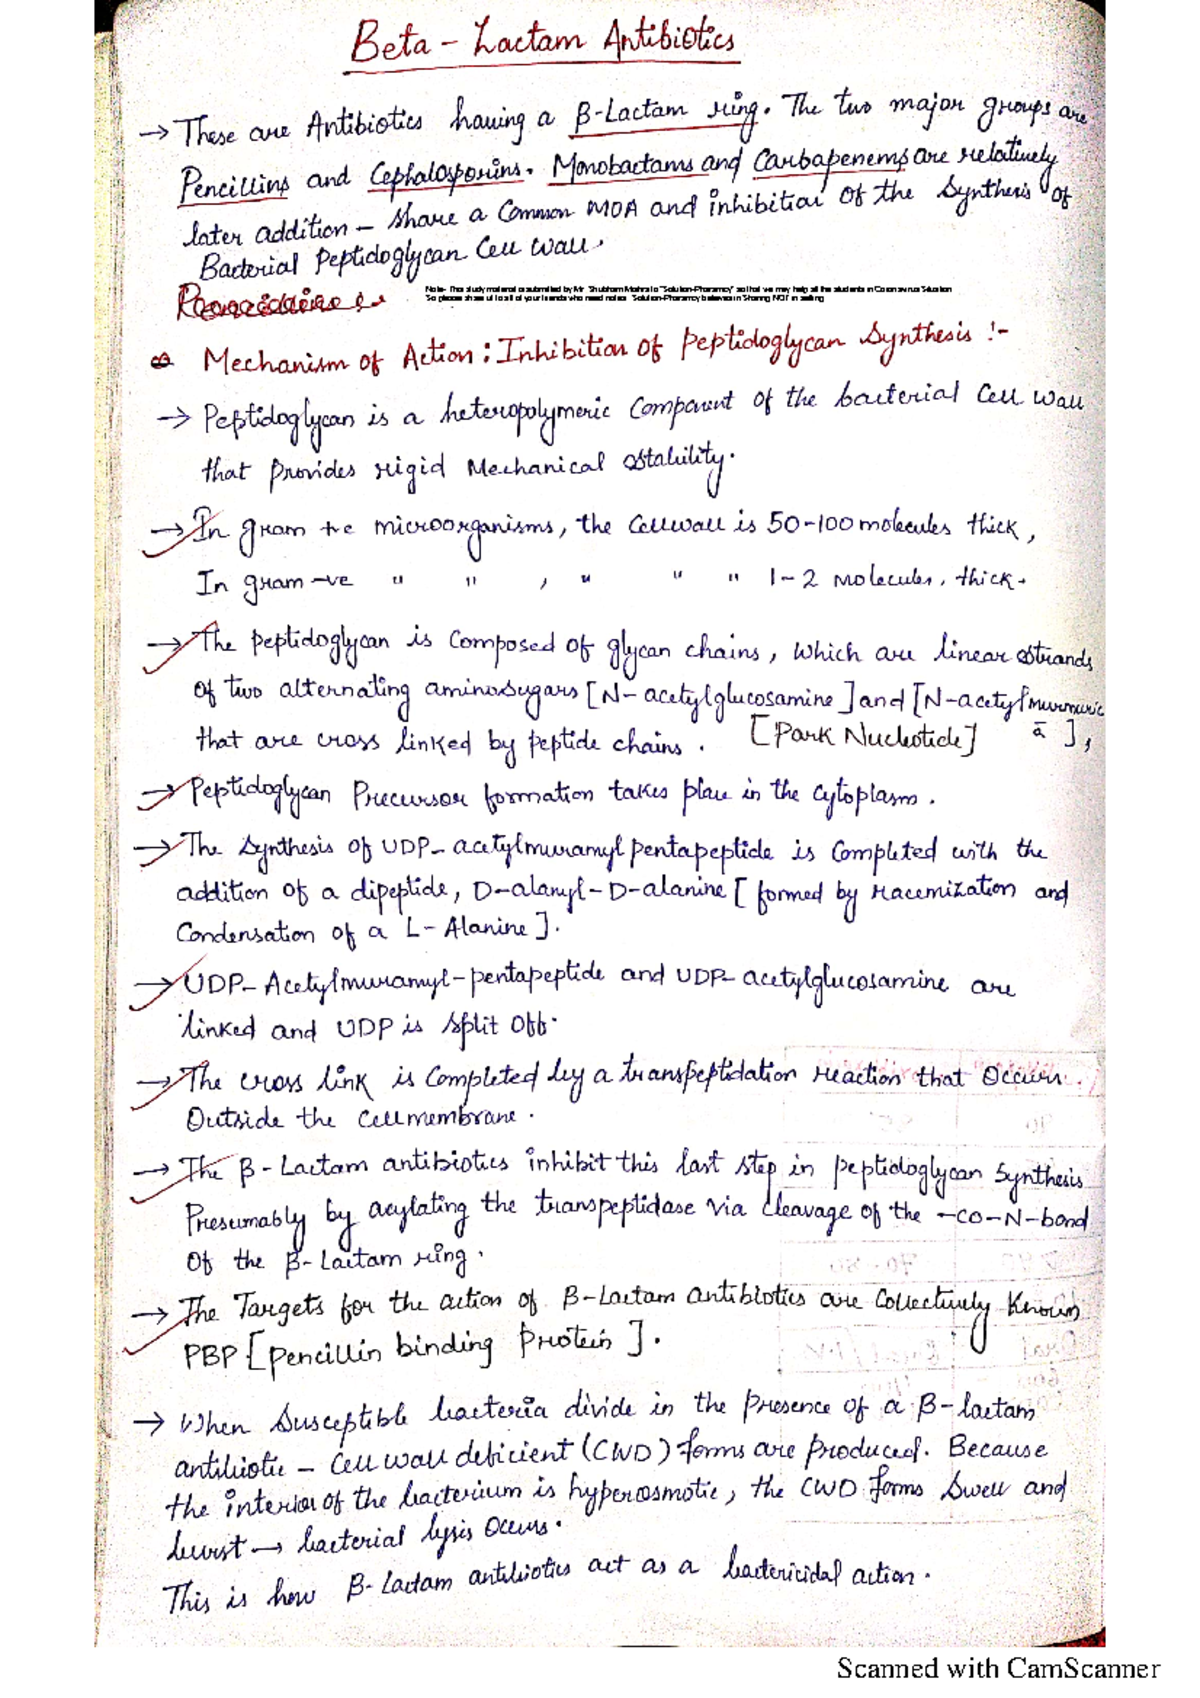 Beta - Lactam Antibiotics
→ These are Antibiotics having a β-Lactam ring. The two major groups are
Pencillins and Cephalosporins. Monobactams and Carbapenems are relatively
later addition - share a Common MOA and inhibition of the Synthesis of
Bacterial Peptidoglycan Cell wall.
Note- This study material is submitted by Mr. Shubham Mishra to "Solution-Pharamcy" so that we may help all the students in Coronavirus Situation
So please share ut to all of your friends who need notes. Solution-Pharamcy believes in Sharing NOT in selling
Mechanism of Action : Inhibition of Peptidoglycan Synthesis :-
→ Peptidoglycan is a heteropolymeric Component of the bacterial Cell wall
that Provides rigid Mechanical Stability.
→ In gram +ve microorganisms, the Cellwall is 50-100 molecules thick,
In gram -ve " " , " " " 1-2 molecules, thick.
→ The peptidoglycan is Composed of glycan chains, which are linear Strands
of two alternating aminosugars [N-acetylglucosamine] and [N-acetylmurmuric
that are cross linked by peptide chains. [Park Nucleotide] a ],
→ Peptidoglycan Precursor formation takes place in the Cytoplasm.
→ The Synthesis of UDP-acetylmuramyl pentapeptide is Completed with the
addition of a dipeptide, D-alanyl-D-alanine [formed by racemization and
Condensation of a L-Alanine].
→ UDP-Acetylmuramyl-pentapeptide and UDP-acetylglucosamine are
linked and UDP is Split Off.
→ The cross link is Completed by a transpeptidation reaction that Occurs
Outside the Cellmembrane.
→ The β-Lactam antibiotics inhibit this last step in peptidoglycan Synthesis
Presumably by acylating the transpeptidase via Cleavage of the -CO-N-bond
Of the β-Lactam ring.
→ The Targets for the action of β-Lactam antibiotics are Collectively Known
PBP [Pencillin binding Protein].
→ When Susceptible bacteria divide in the Presence of a β-lactam
antibiotic - Cell wall deficient (CWD) forms are Produced. Because
the interior of the bacterium is hyperosmotic, the CWD forms Swell and
burst → bacterial lysis Occurs.
This is how β-Lactam antibiotics act as a bactericidal action.
Scanned with CamScanner